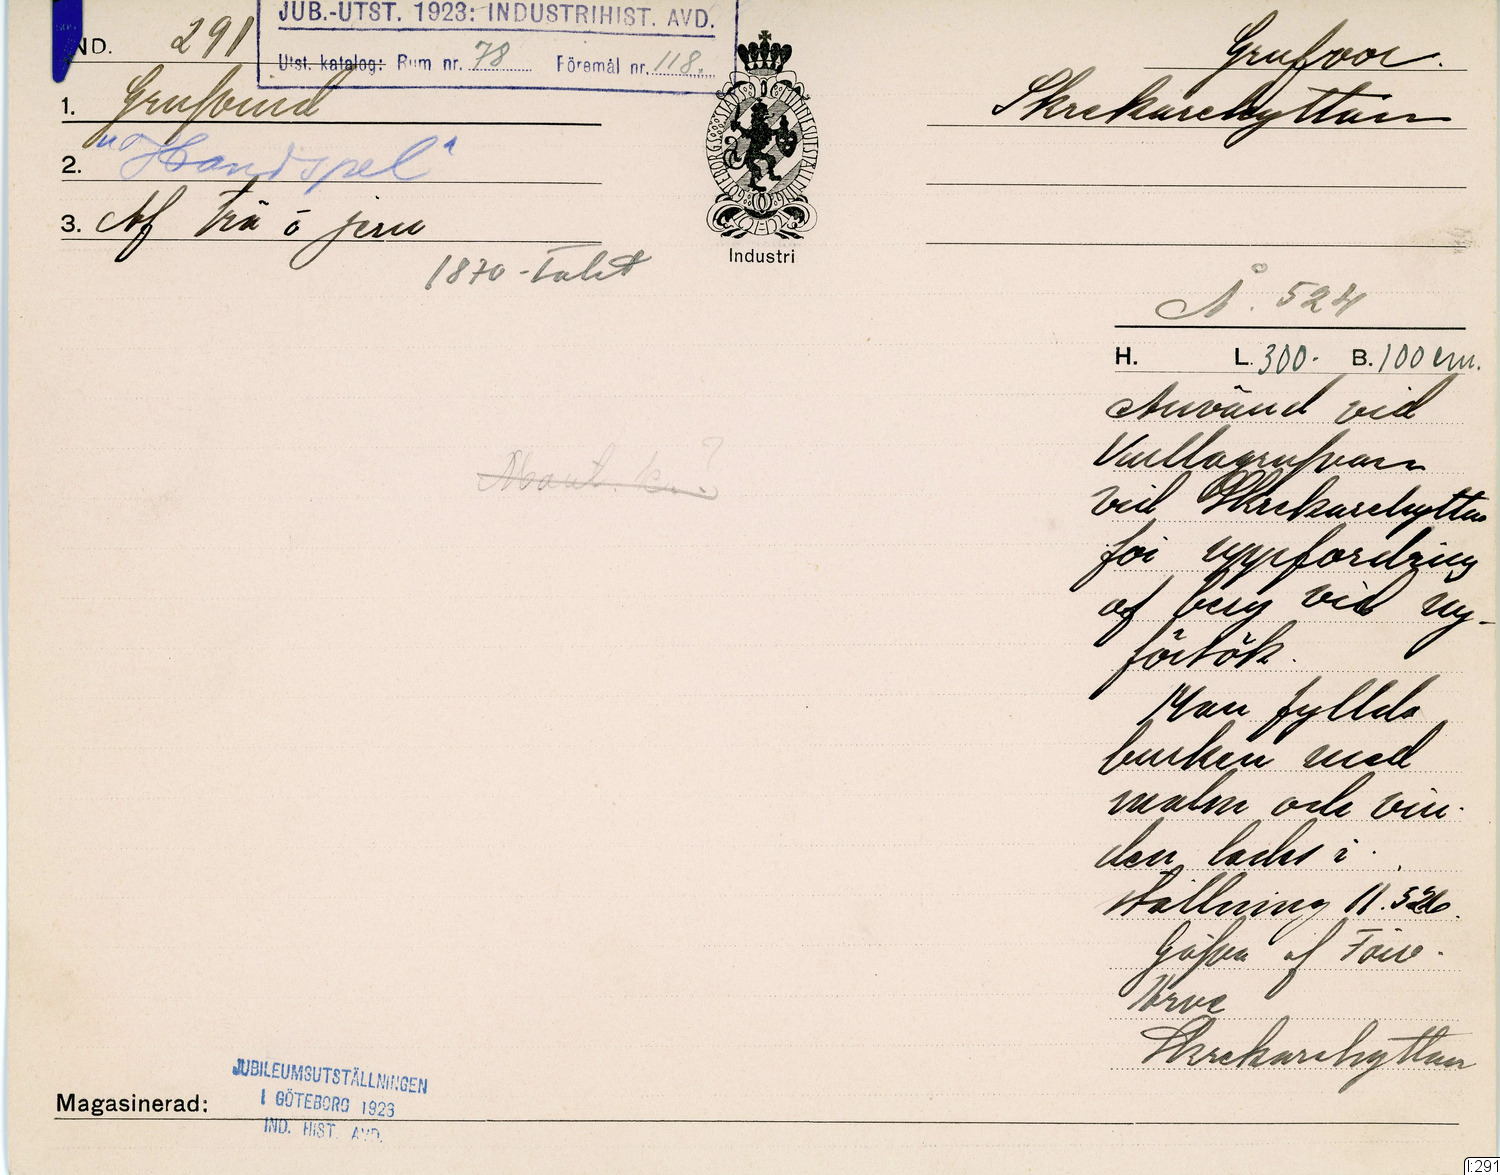 JUB.-UTST. 1923: INDUSTRIHIST. AVD.
Utst. katalog: Rum nr. 78 Föremål nr. 118.
IND. 291
1. Grufvind
2. "Handspel"
3. Af trä o jern
1870-Talet
GÖTEBORGS STADS
Industri
Grufvor.
Skrekarehyttan
Å. 524
H. L. 300. B. 100 cm.
Använd vid
vid Skrekarehyttan
för uppfordring
af berg vid ny-
försök.
Man fyllde
burken med
malm och vin-
den lades i
ställning 11.526.
Gåfva af
Skrekarehyttan
Magasinerad:
JUBILEUMSUTSTÄLLNINGEN
I GÖTEBORG 1923
IND. HIST. AVD.
I:291